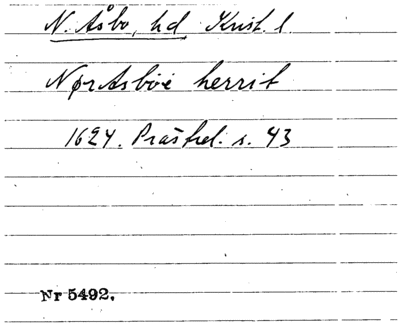 N. Åsbo, hd Krist. l
Nør Asboe herrit
1624. Präsrel. s. 43
Nr 5492.